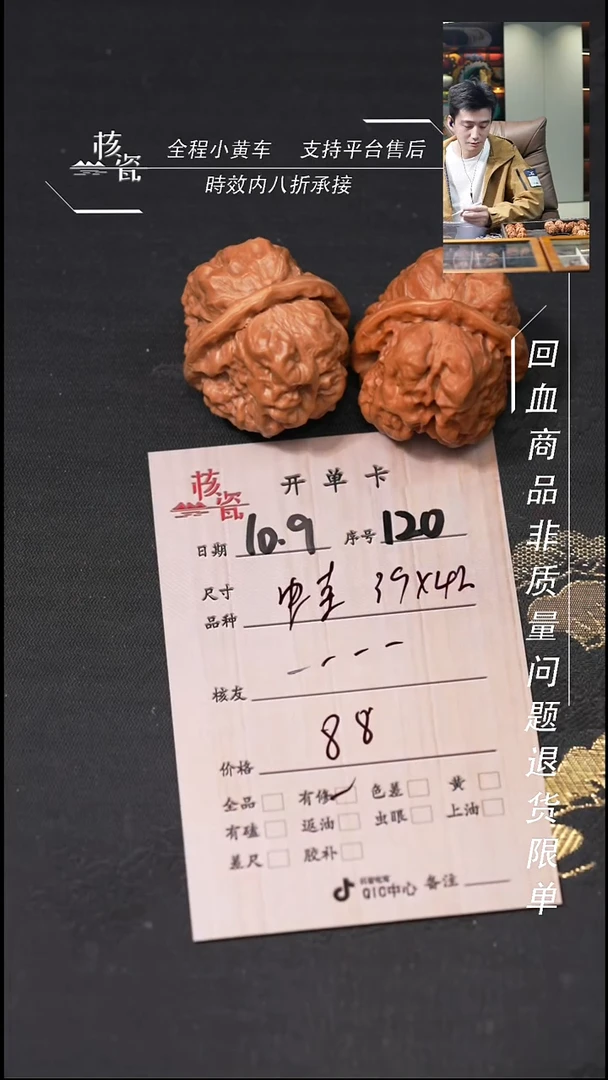 核瓷
全程小黄车 支持平台售后
時效内八折承接
回血商品非质量问题退货限单
核瓷
开单卡
日期 10.9 序号 120
尺寸
品种 39X42
核友
价格 88
全品 有修 色差 黄
有磕 返油 虫眼 上油
差尺 胶补
QIC中心 备注